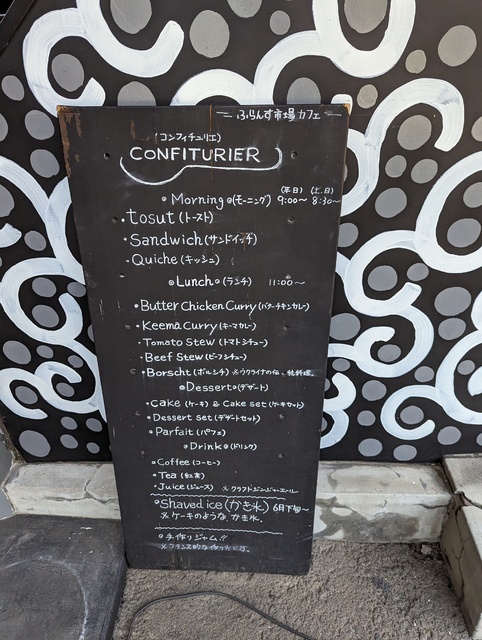 ふらんす市場カフェ
(コンフィチュリエ)
CONFITURIER
(平日) (土.日)
Morning (モーニング) 9:00～ 8:30～
・tosut (トースト)
・Sandwich (サンドイッチ)
・Quiche (キッシュ)
Lunch (ランチ) 11:00～
・Butter Chicken Curry (バターチキンカレー)
・Keema Curry (キーマカレー)
・Tomato Stew (トマトシチュー)
・Beef Stew (ビーフシチュー)
・Borscht (ボルシチ) ※ウクライナの伝統料理
Dessert (デザート)
・Cake (ケーキ) & Cake set (ケーキセット)
・Dessert set (デザートセット)
・Parfait (パフェ)
Drink (ドリンク)
・Coffee (コーヒー)
・Tea (紅茶)
・Juice (ジュース) ※クラフトジンジャーエール
Shaved ice (かき氷) 6月下旬～
※ケーキのような かき氷。
手作りジャム!!
※フランス的な作り方